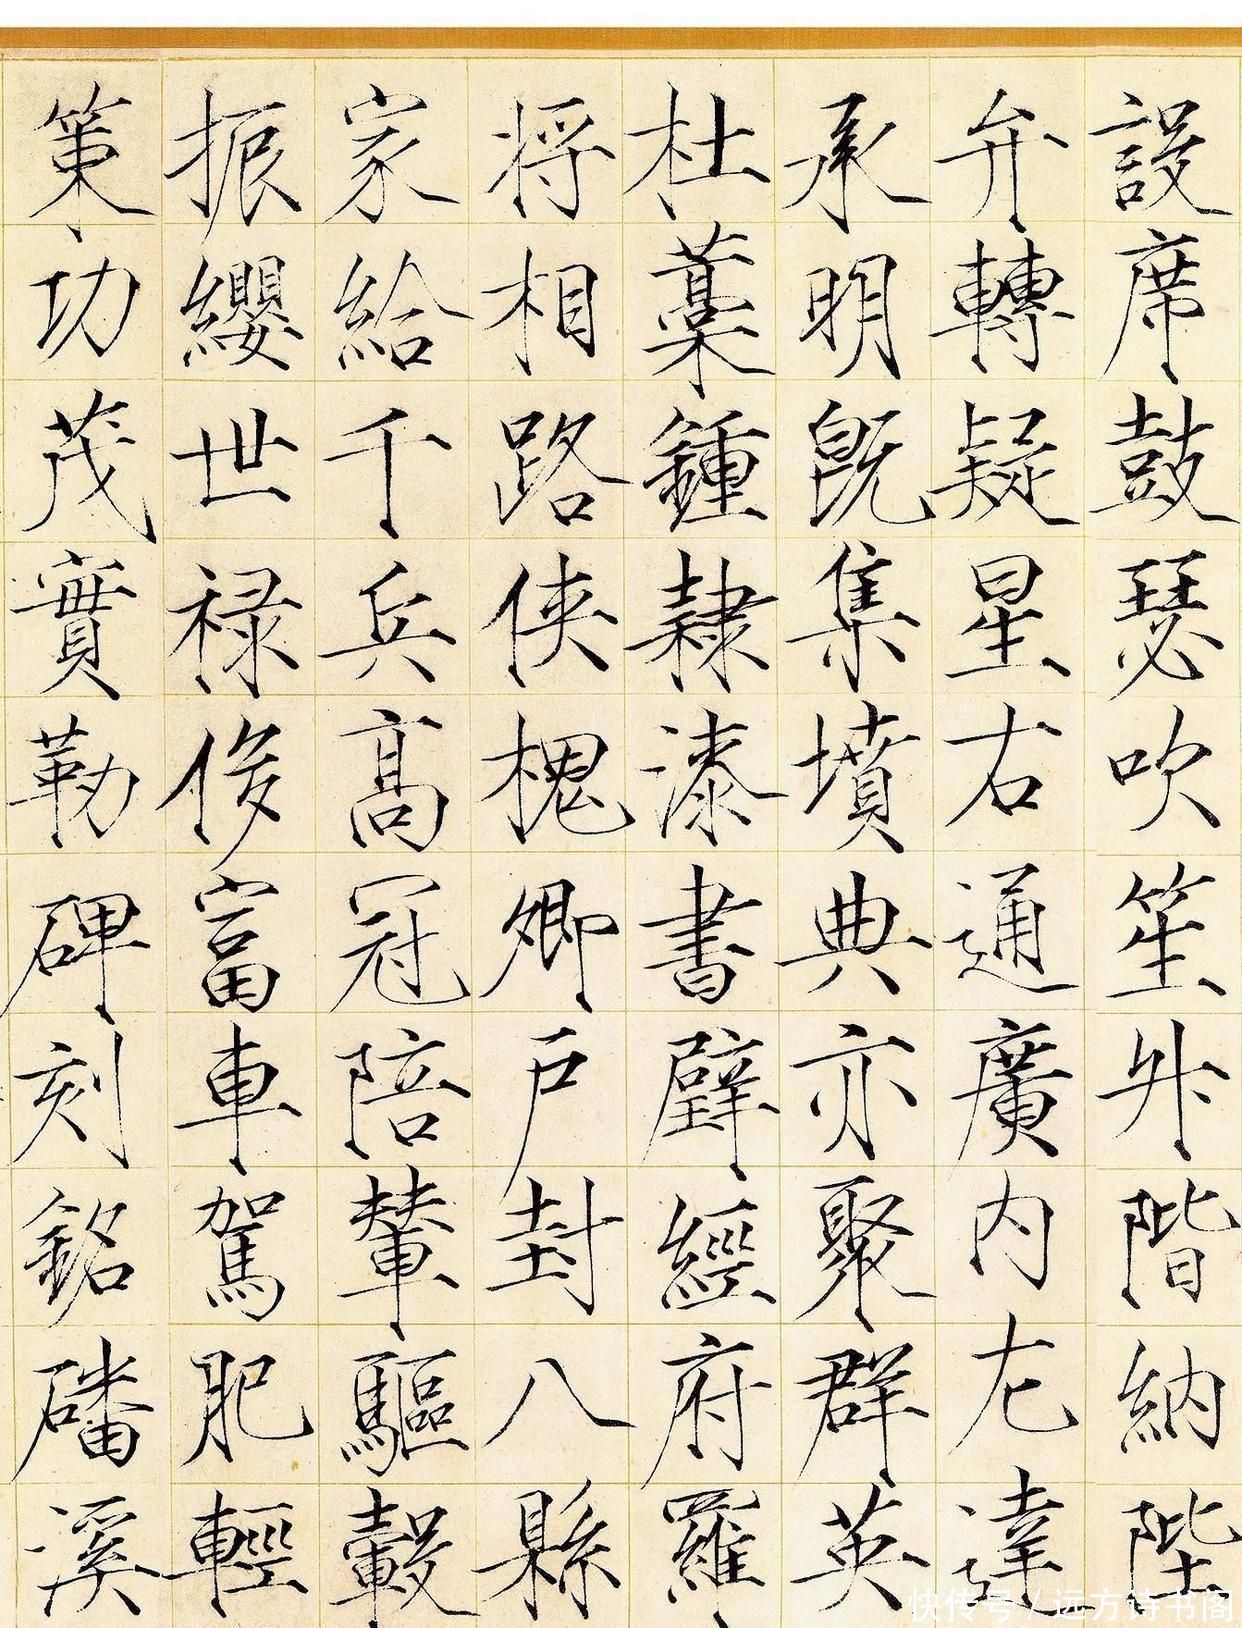 設席鼓瑟吹笙升階納陛
弁轉疑星右通廣内左達
承明既集墳典亦聚群英
杜藁鍾隸漆書壁經府羅
将相路俠槐卿戶封八縣
家給千兵高冠陪輦驅轂
振纓世禄侈富車駕肥輕
策功茂實勒碑刻銘磻溪
快传号/远方诗书阁